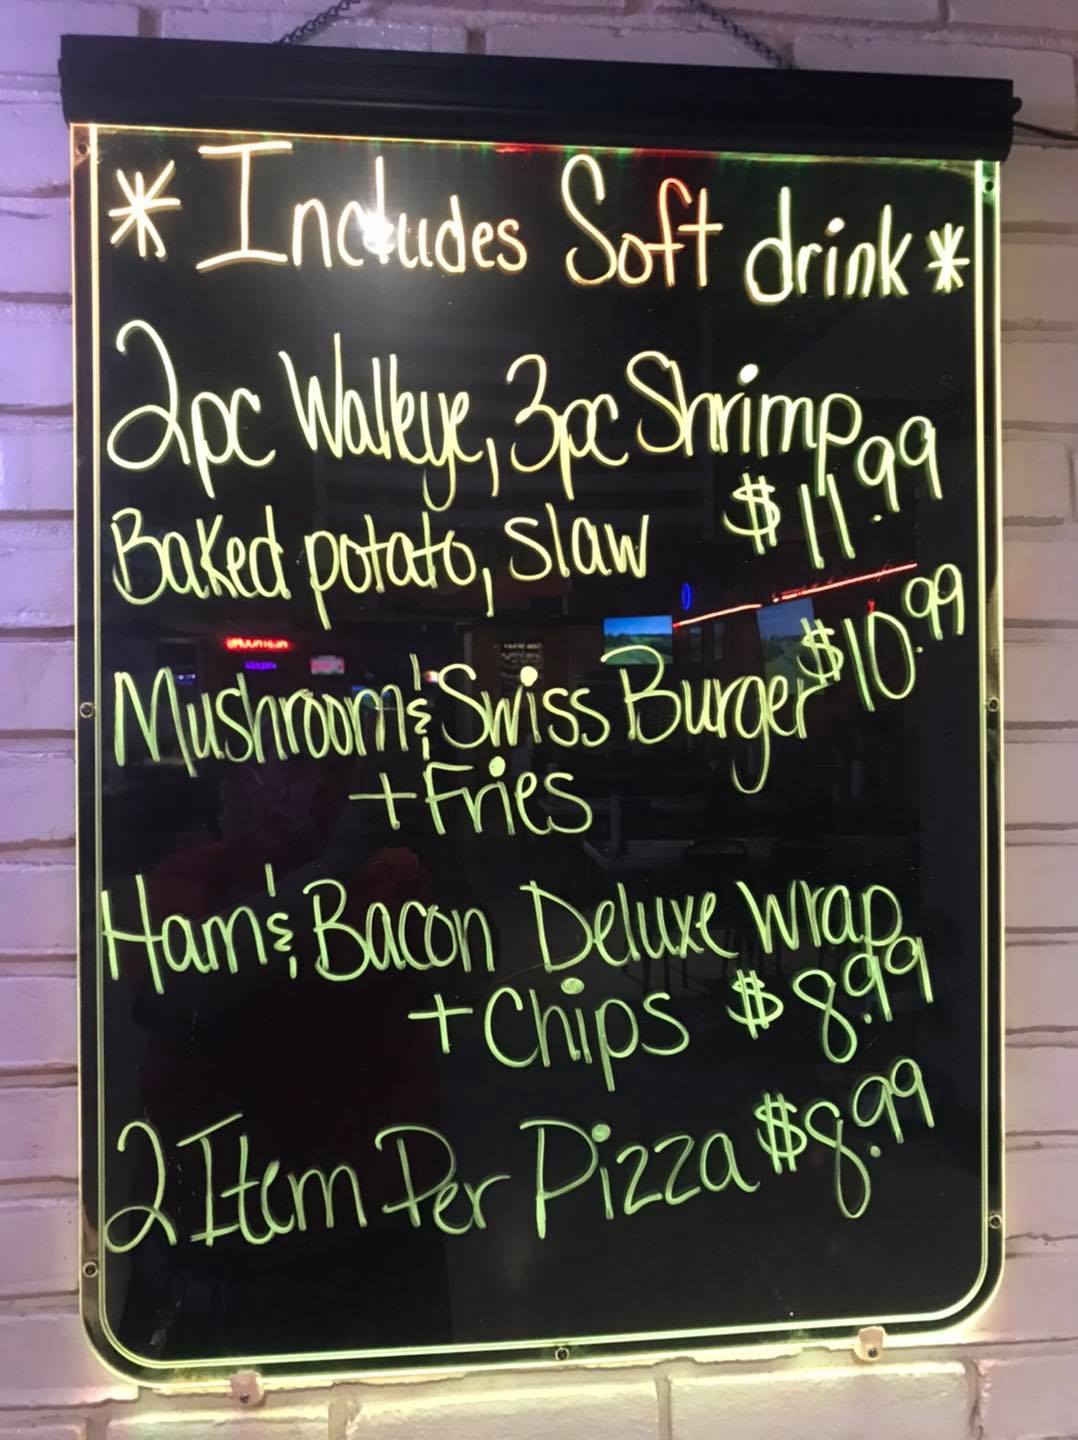 * Includes Soft drink *
2pc Walleye, 3pc Shrimp
Baked potato, slaw $11.99
Mushroom & Swiss Burger $10.99
+ Fries
Ham & Bacon Deluxe Wrap
+ Chips $8.99
2 Item Per Pizza $8.99